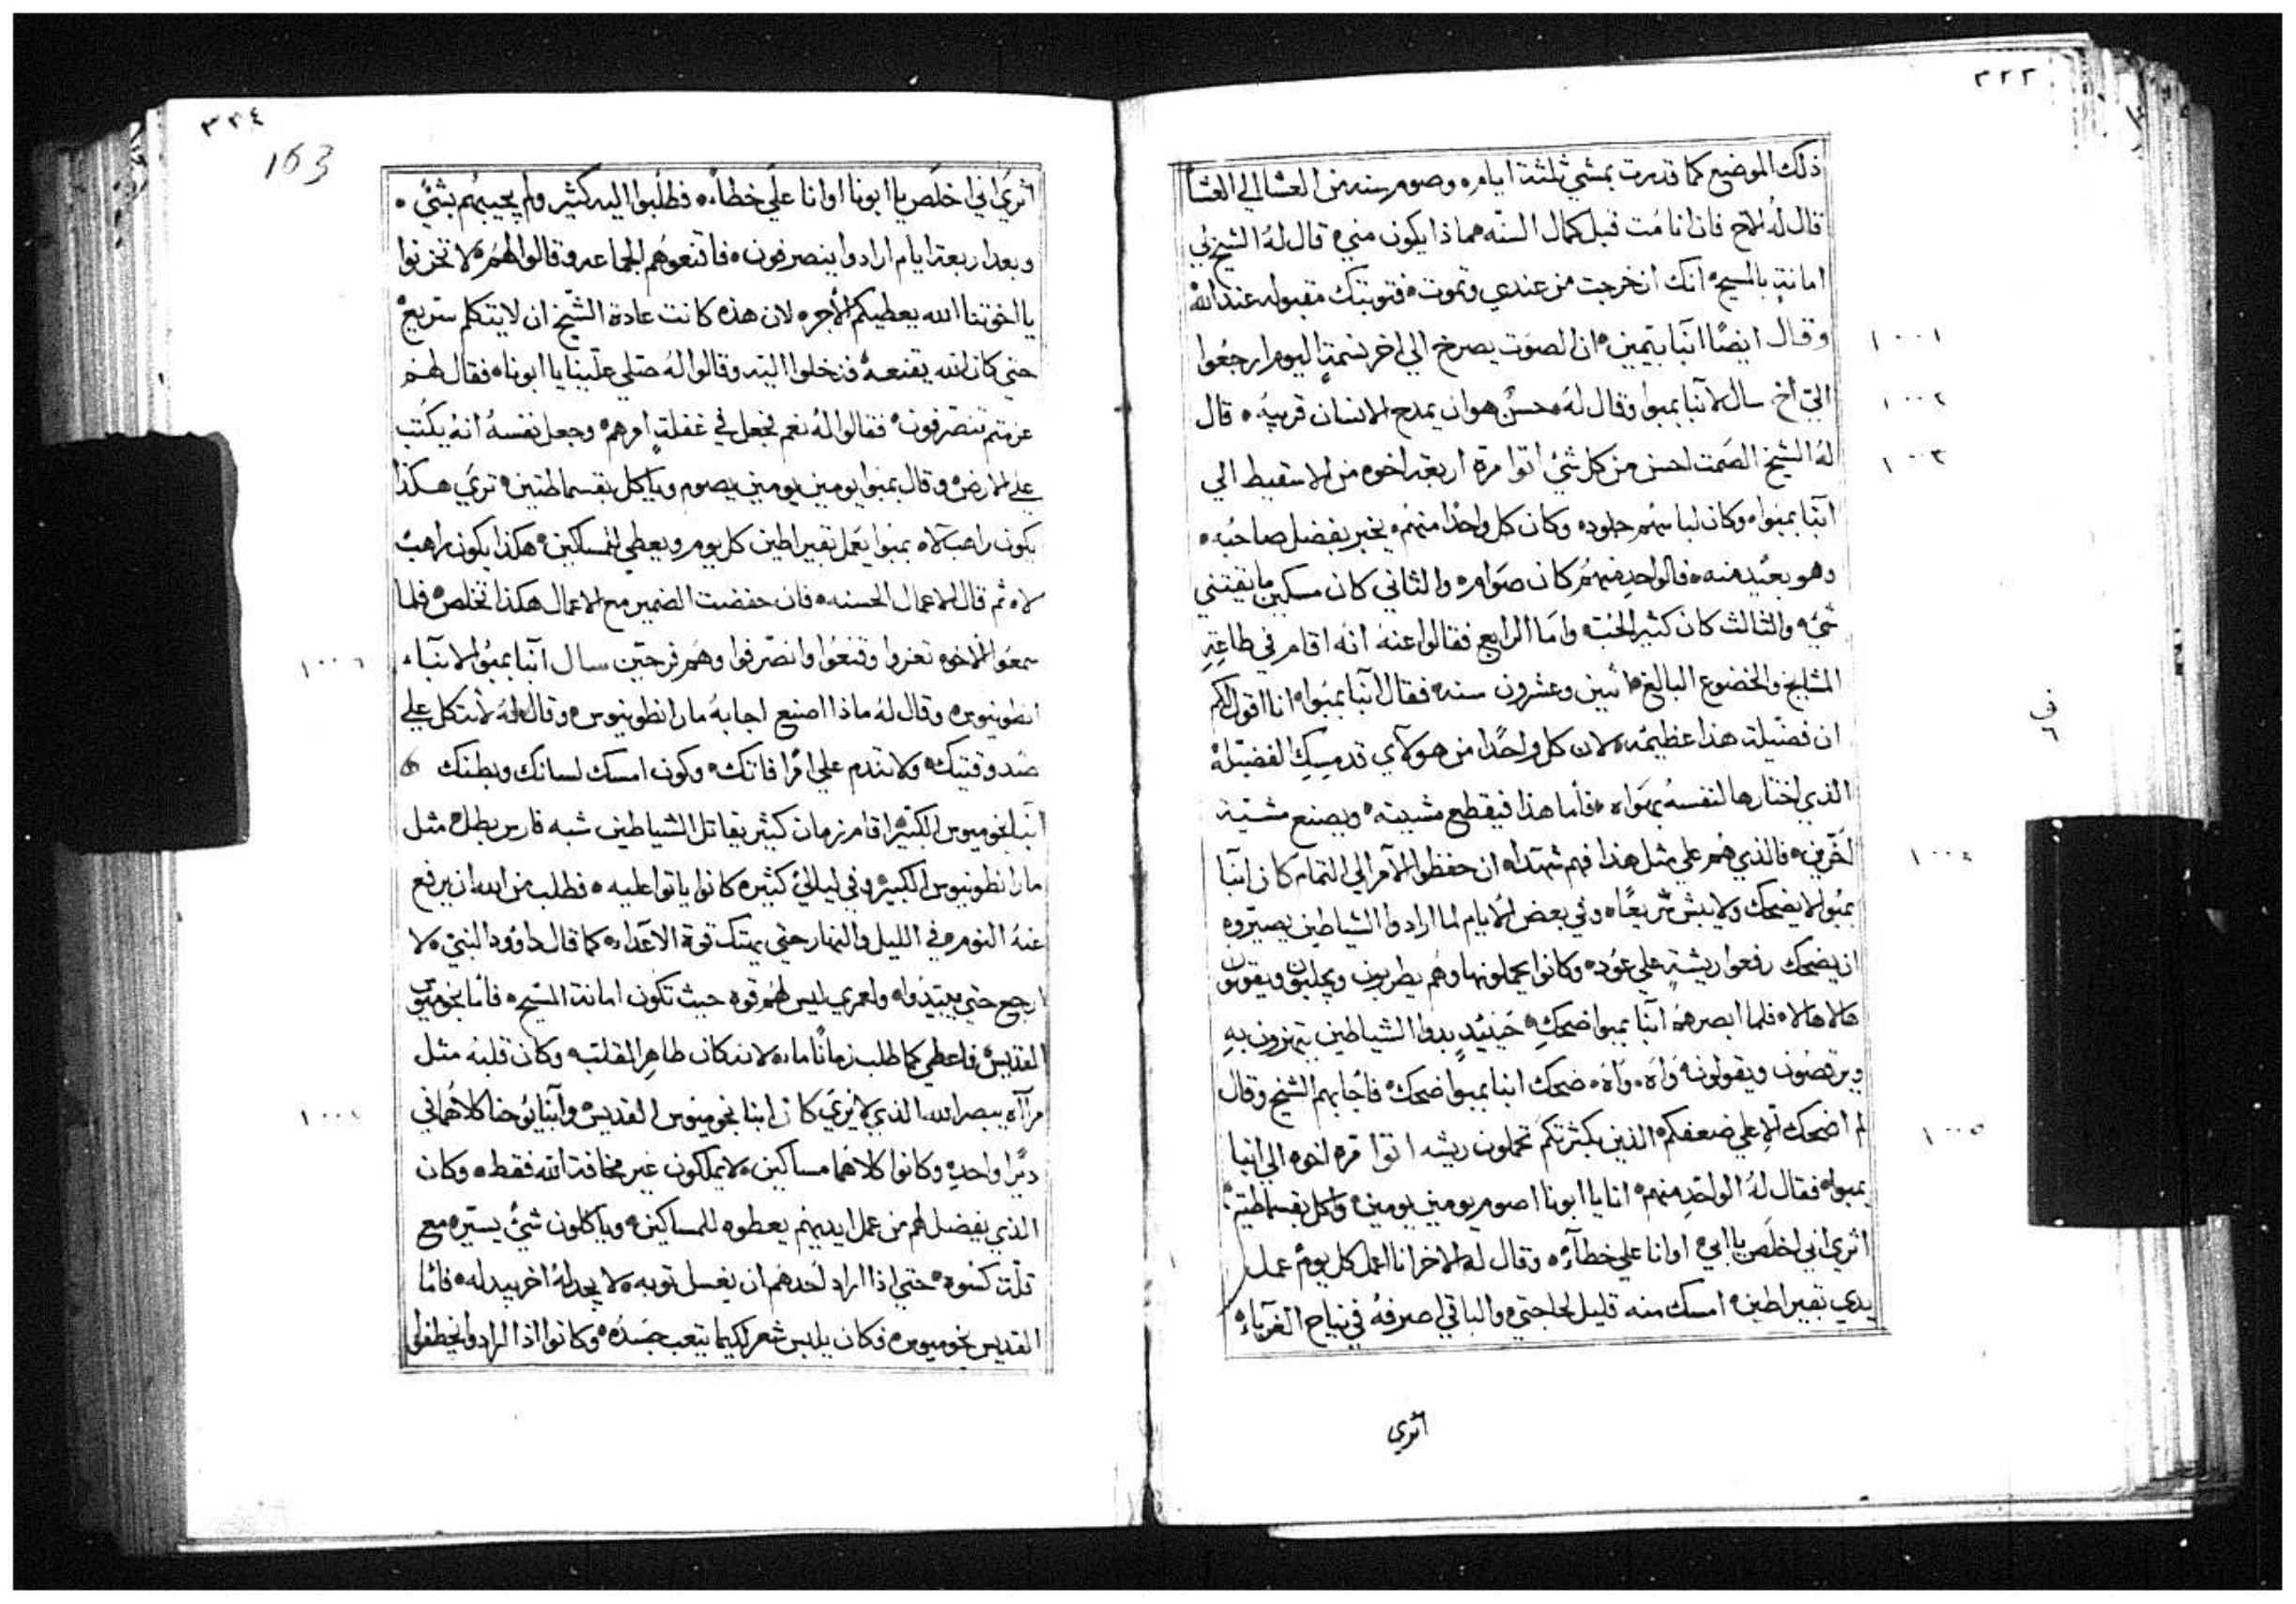 ٣٢٣
ذلك الموضع كما قدرت بمشي ثلثة ايام ه وصوم سنه من العشا الي العشا
قال له الاخ فان انا مُت قبل كمال السنه فماذا يكون مني ه قال له الشيخ لي
امانةٍ بالمسيح ه انك ان خرجت من عندي وتموت ه فتوبتك مقبوله عند الله
وقال ايضًا انبا بيمين ه ان الصوت يصرخ الي اخر نسمةٍ اليوم ارجعُوا ١٠٠١
اليّ اخ سال لانبا بمبوا وقال لهُ ه حسنٌ هو ان يمدح الانسان قريبهُ ه قال ١٠٠٢
لهُ الشيخ الصَمت احسن من كل شي اتوا مرة اربعة اخوه من الاسقيط الي ١٠٠٣
انبا بمبوا ه وكان لباسهُم جلود ه وكان كل واحدًا منهُم ه يخبر بفضل صاحبُه ه
وهو بعيد منه ه فالواحد منهمُ كان صوام ه والثاني كان مسكين ما يقتني
شي ه والثالث كان كثير الحُب ه واما الرابع فقالوا عنهُ انهُ اقام في طاعةِ
المشايخ والخضوع البالغ ه اثنين وعشرون سنه ه فقال انبا بمبوا ه انا اقول لكم
ان فضيلة هذا عظيمُه ه لان كل واحدًا من هولاي قد مسك الفضيلة
الذي اختارها لنفسهُ بهواه ه فأما هذا فيقطع مشيته ه ويصنع مشية
اخرين ه فالذي هُم علي مثل هذا فهم شهدا ه ان حفظوا الامر الي التمام كان انبا ١٠٠٤
بمبوا لا يضحك ولا يبش سريعًا ه وفي بعض الايام لما ارادوا الشياطين يصيروه
ان يضحك رفعوا ريشةٍ علي عُود ه وكانوا يحملونها وهُم يطربون ويجلبون ويقولون
هالا هالا ه فلما ابصرهمُ انبا بمبوا ضحك ه حينيدٍ بدوا الشياطين يتهزون بهِ
ويرقصُون ويقولون ه وَاهْ ه وَاهْ ه ضحك انبا بمبوا ضحك ه فأجابهم الشيخ وقال
لم اضحك الا علي ضعفكم ه الذين بكثرتكم تحملون ريشه اتوا مره اخوه الي انبا ١٠٠٥
بمبوا ه فقال لهُ الواحد منهم ه انا يا ابونا اصوم يومين يومين ه واكل بقسماطتين
اتري اني اخلص يا ابي ه او انا علي خطأ ه وقال لهُ الاخر انا اعمل كل يوم عمل
يدي بقيراطين ه امسك منه قليل لحاجتي والباقي اصرفهُ في نياح الغربا ه
اتري
٣٢٤
163
اتري اني اخلص يا ابونا او انا علي خطأ ه فطلبوا اليه كثير ولم يجيبهُم بشي ه
وبعد اربعة ايام ارادوا ينصرفون ه فاقنعوهُم الجماعه وقالوا لهُم ه لا تحزنوا
يا اخوتنا الله يعطيكم الأجر ه لان هذه كانت عادة الشيخ ان لا يتكلم سريع
حتي كان الله يقنعهُ فدخلوا اليه وقالوا لهُ صلي علينا يا ابونا ه فقال لهُم
عزمتم تنصرفون ه فقالوا لهُ نعم فجعل في غفلةٍ امرهم ه وجعل نفسهُ انهُ يكتب
علي الارض ه وقال بمبوا يومين يومين يصوم وياكل بقسماطتين ه تري هكذا
يكون راهب لا ه بمبوا يعمل بقيراطين كل يوم ويعطي المساكين ه هكذا يكون راهب
لا ه ثم قال الاعمال الحسنه ه فان حفضت الضمير مع الاعمال هكذا تخلص ه فلما
سمعوا الاخوه تعزوا وقنعُوا وانصرفوا وهُم فرحين سال انبا بمبوا لانبا ١٠٠٦
انطونيوس ه وقال لهُ ماذا اصنع اجابهُ مار انطونيوس ه وقال لهُ لا تتكل علي
صدوقيتك ه ولا تندم علي امرًا فاتك ه وكون امسك لسانك وبطنك
انبا بخوميوس الكبير ه اقام زمان كثير يقاتل الشياطين شبه فارس بطل ه مثل
مار انطونيوس الكبير ه وفي ليالي كثيره كانوا ياتوا عليه ه فطلب من الله ان يرفع
عنهُ النوم ه في الليل والنهار حتي يهتك قوة الاعدا ه كما قال داوود النبي ه لا
ارجع حتي يبيدُوا ه ولعمري ليس لهُم قوه حيث تكون امانة المسيح ه فأما بخوميوس
القديس فاعطي كما طلب زمانًا ما ه لانهُ كان طاهر القلب ه وكان قلبهُ مثل
مرآه يبصر الله الذي لا يُري كان انبا بخوميوس القديس ه وانبا يُوحنا كلاهُما في ١٠٠٨
ديرًا واحدٍ وكانوا كلاهُما مساكين ه لا يملكون غير مخافة الله فقط ه وكان
الذي يفضل لهم من عمل ايديهُم يعطوه للمساكين ه وياكلون شي يسير ه مع
قلة كسوه ه حتي اذا اراد احدهُم ان يغسل توبه ه لا يجد لهُ اخر يبدله ه فاما
القديس بخوميوس ه فكان يلبس شعر لكيما يتعب جسَدُه ه وكانوا اذا ارادوا